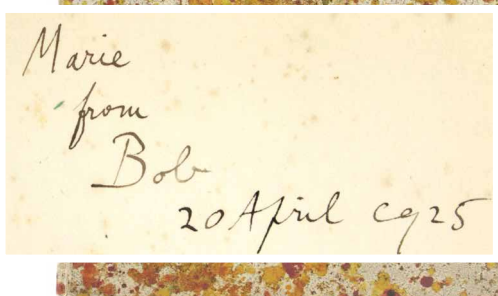 Marie
from
Bob
20 April 1925